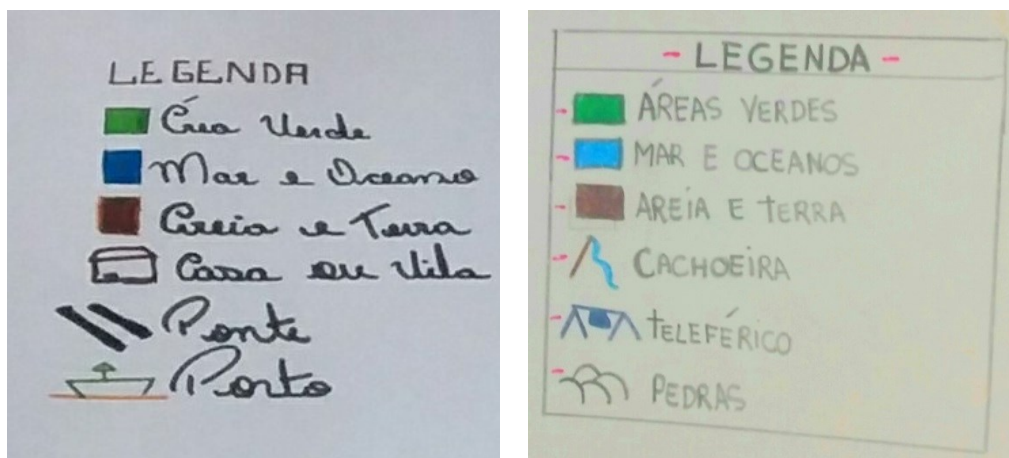 LEGENDA
Área Verde
Mar e Oceano
Areia e Terra
Casa ou Vila
Ponte
Porto
- LEGENDA -
- ÁREAS VERDES
- MAR E OCEANOS
- AREIA E TERRA
- CACHOEIRA
- TELEFÉRICO
- PEDRAS